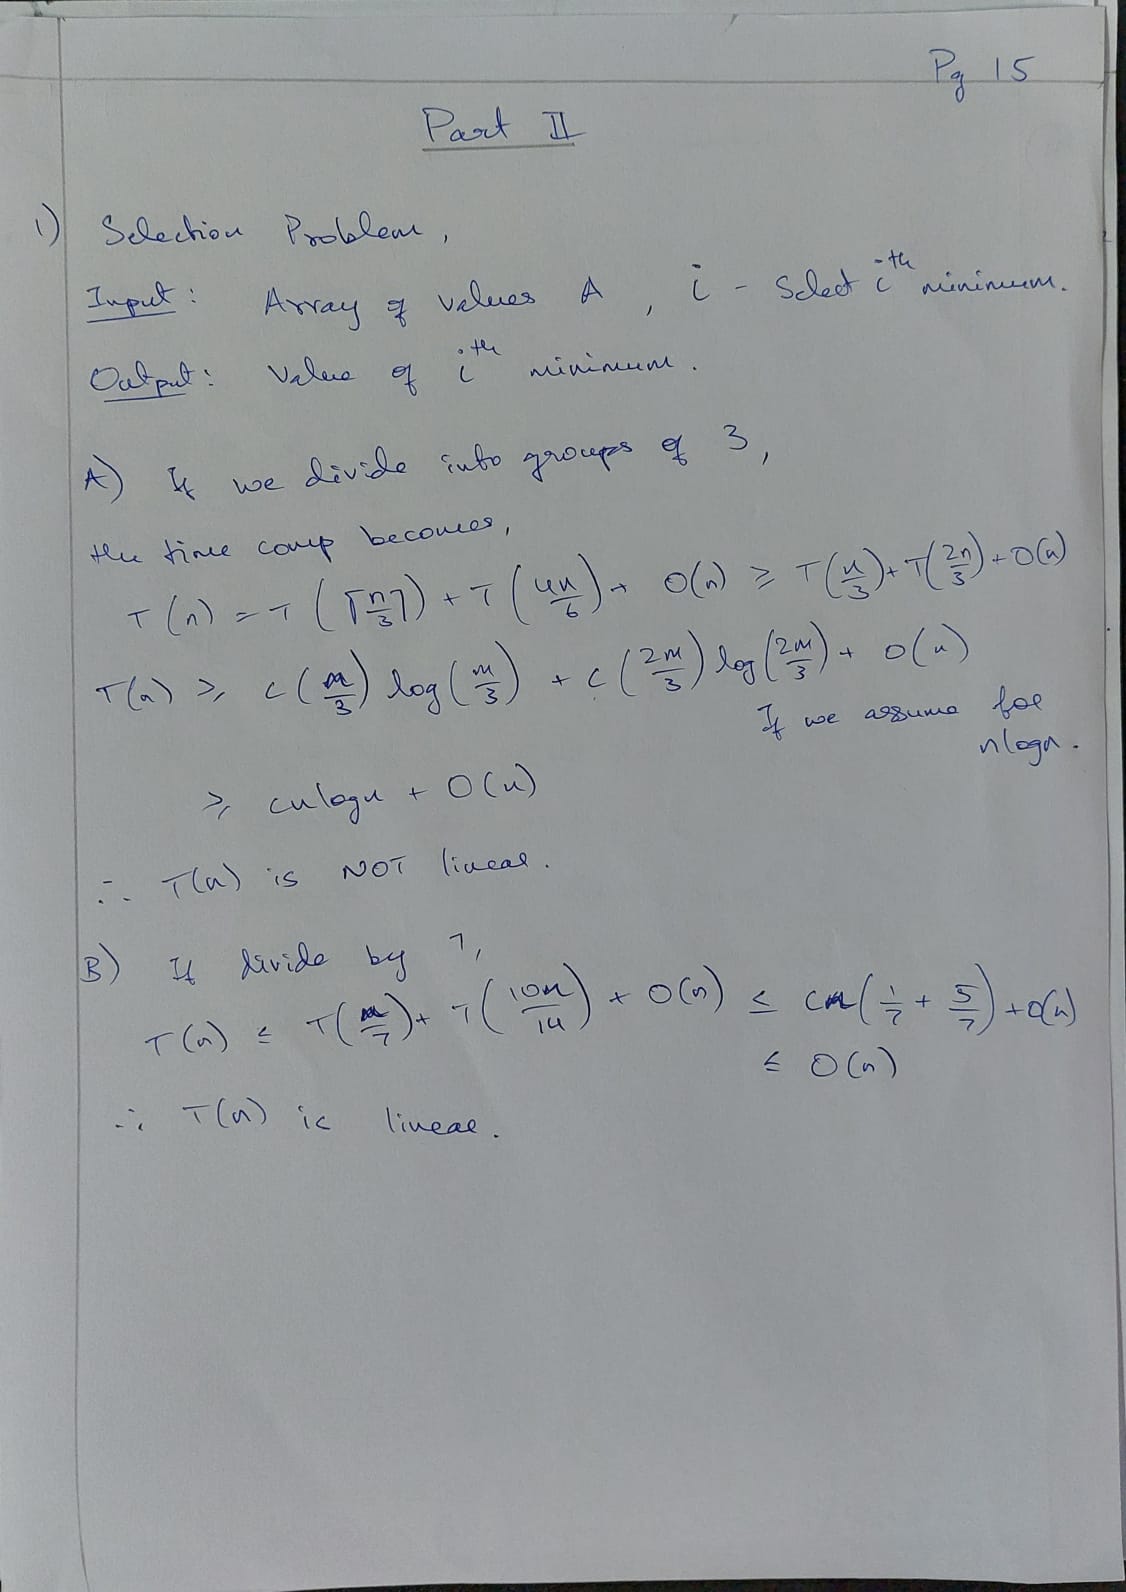 Pg 15
Part II
1) Selection Problem,
Input: Array of values A, i - Select i^th minimum.
Output: Value of i^th minimum.
A) If we divide into groups of 3,
the time comp becomes,
T(n) = T(⌈n/3⌉) + T(4n/6) + O(n) ≥ T(n/3) + T(2n/3) + O(n)
T(n) ≥ c(n/3) log(n/3) + c(2n/3) log(2n/3) + O(n)
If we assume for
nlogn.
≥ cnlogn + O(n)
∴ T(n) is NOT linear.
B) If divide by 7,
T(n) ≤ T(n/7) + T(10n/14) + O(n) ≤ cn(1/7 + 5/7) + O(n)
≤ O(n)
∴ T(n) is linear.